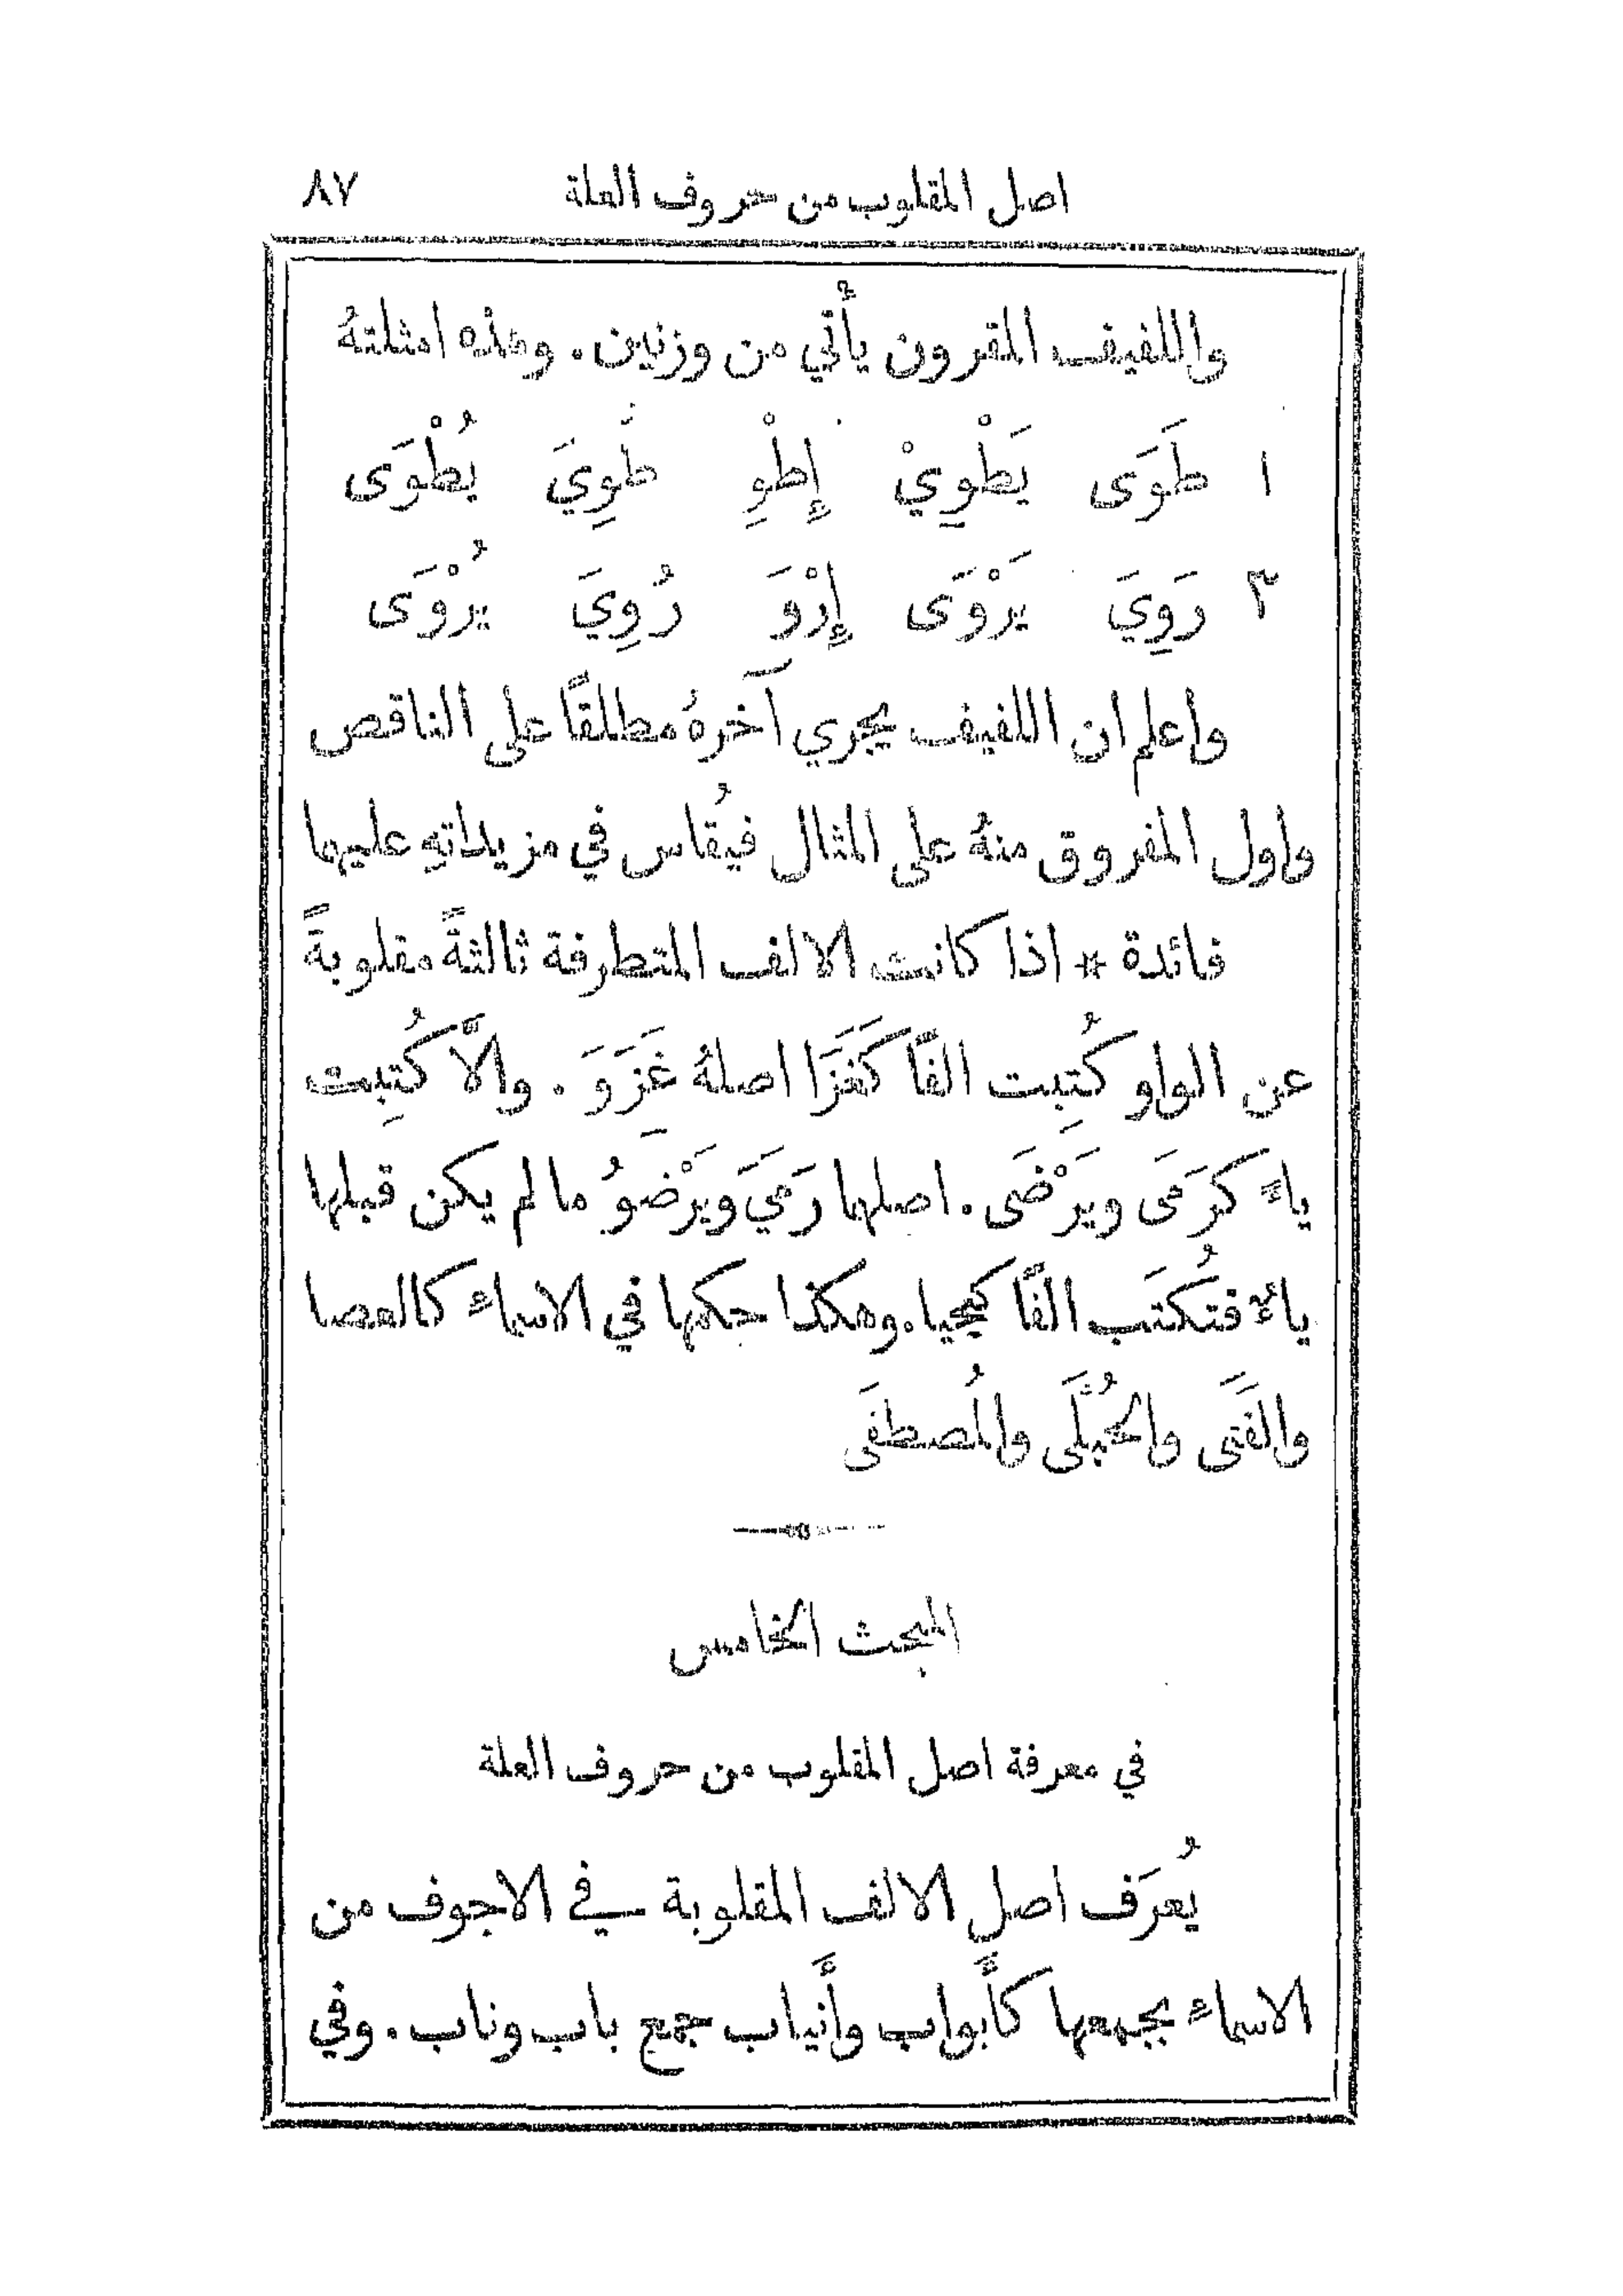 اصل المقلوب من حروف العلة ٨٧
واللفيف المقرون يأْتي من وزنين. وهذه امثلتهُ
١ طَوَى يَطْوِيْ إِطْوِ طُوِيَ يُطْوَى
٣ رَوِيَ يَرْوَى إِرْوَ رُوِيَ يُرْوَى
واعلم ان اللفيف يجري آخرهُ مطلقًا على الناقص
واول المفروق منهُ على المثال فيُقاس في مزيداتهِ عليهما
فائدة * اذا كانت الالف المتطرفة ثالثةً مقلوبةً
عن الواو كُتِبت الفًا كَغَزَا اصلهُ غَزَوَ. والَّا كُتِبت
ياءً كرَمَى ويَرْضَى. اصلهما رَمَيَ ويَرْضِوُ ما لم يكن قبلها
ياءٌ فتُكتَب الفًا كيحيا. وهكذا حكمها في الاسماء كالعصا
والفَتَى والحُبْلَى والمُصطفَى
المبحث الخامس
في معرفة اصل المقلوب من حروف العلة
يُعرَف اصل الالف المقلوبة في الاجوف من
الاسماء بجمعها كأَبواب وأَنياب جمع باب وناب. وفي